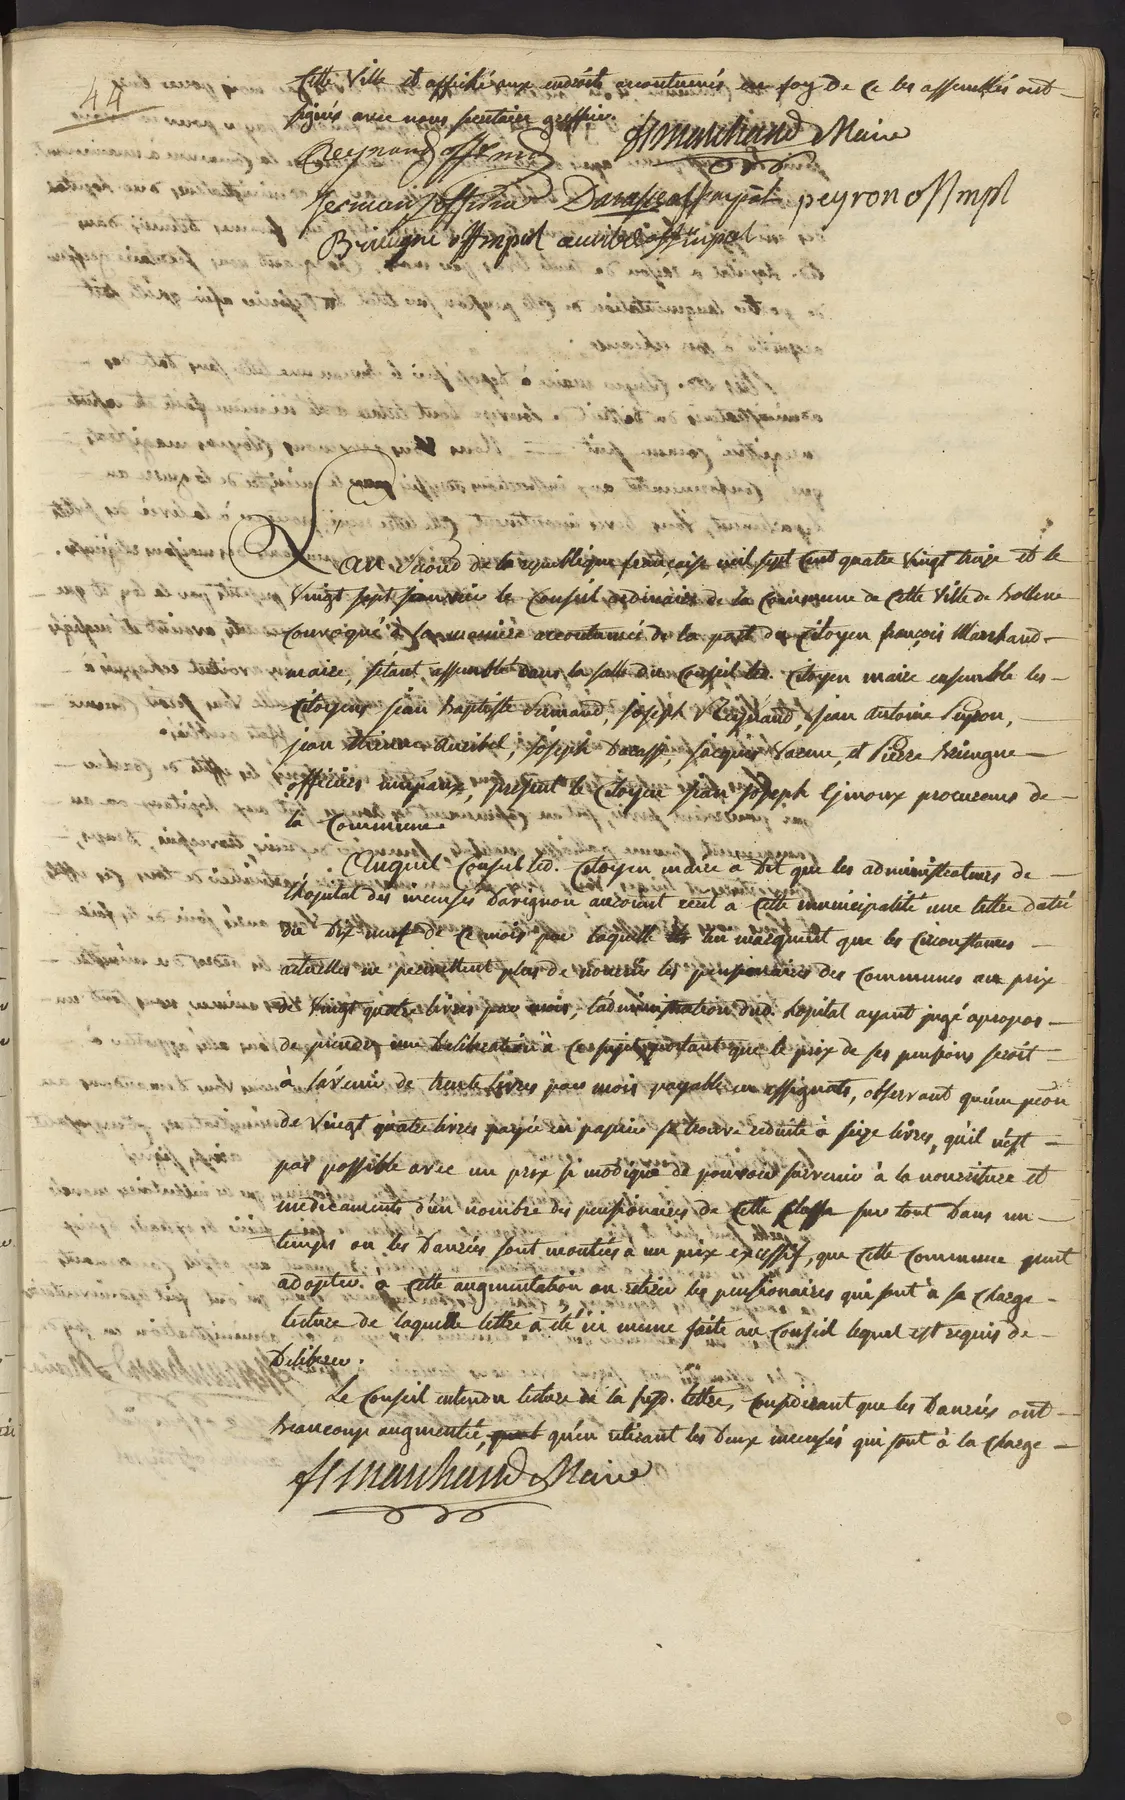 44
Cette Ville et affiché aux endroits accoutumés en foy de ce les assemblés ont
signés avec nous secretaire greffier.
fs marchand Maire
Reynaud off. mal
german officier Darasse off mpal peyron off mpl
Bringne off mpal auribel off mpal
L'an second de la republique française mil sept cent quatre vingt treize et le
vingt sept janvier le conseil ordinaire de la Commune de cette Ville de Bollene
convoqué à la maniere accoutumée de la part du citoyen françois Marchand
maire, s'étant assemblé dans la salle du Conseil led. Citoyen maire ensemble les
Citoyens jean baptiste Germand, joseph Reynaud, jean antoine Peyron,
jean Auribel, joseph Darasse, jacques et Pierre Bringne
officiers municipaux, present le Citoyen jean joseph Ginoux procureur de
la Commune.
Auquel Conseil led. Citoyen maire a dit que les administrateurs de
l'hopital des incensés Davignon auroient ecrit a cette municipalité une lettre datée
du dix neuf de ce mois par laquelle ils lui marquent que les Circonstances
actuelles ne permettent plus de nourrir les pensionaires des communes au prix
de Vingt quatre livres par mois, l'administration dud. hopital ayant jugé apropos
de prendre une Deliberation à ce sujet portant que le prix de ses pensions seroit
à l'avenir de trente livres par mois payable en assignats, observant qu'un
de Vingt quatre livres payée en papier se trouve reduite à seize livres, qu'il n'est
pas possible avec un prix si modique de pouvoir survenir à la nourriture et
medicaments d'un nombre des pensionaires de cette Classe sur tout dans un
temps ou les Danrées sont montées à un prix excessif, que cette commune peut
adopter à cette augmentation ou retirer les pensionaires qui sont à sa charge
lecture de laquelle lettre a été ici meme faite au Conseil lequel est requis de
Deliberer.
Le Conseil entendu lecture de la susd. lettre, Considerant que les Danrées ont
beaucoup augmentée, qu'en retirant les deux incensés qui sont à la charge
fs marchand Maire